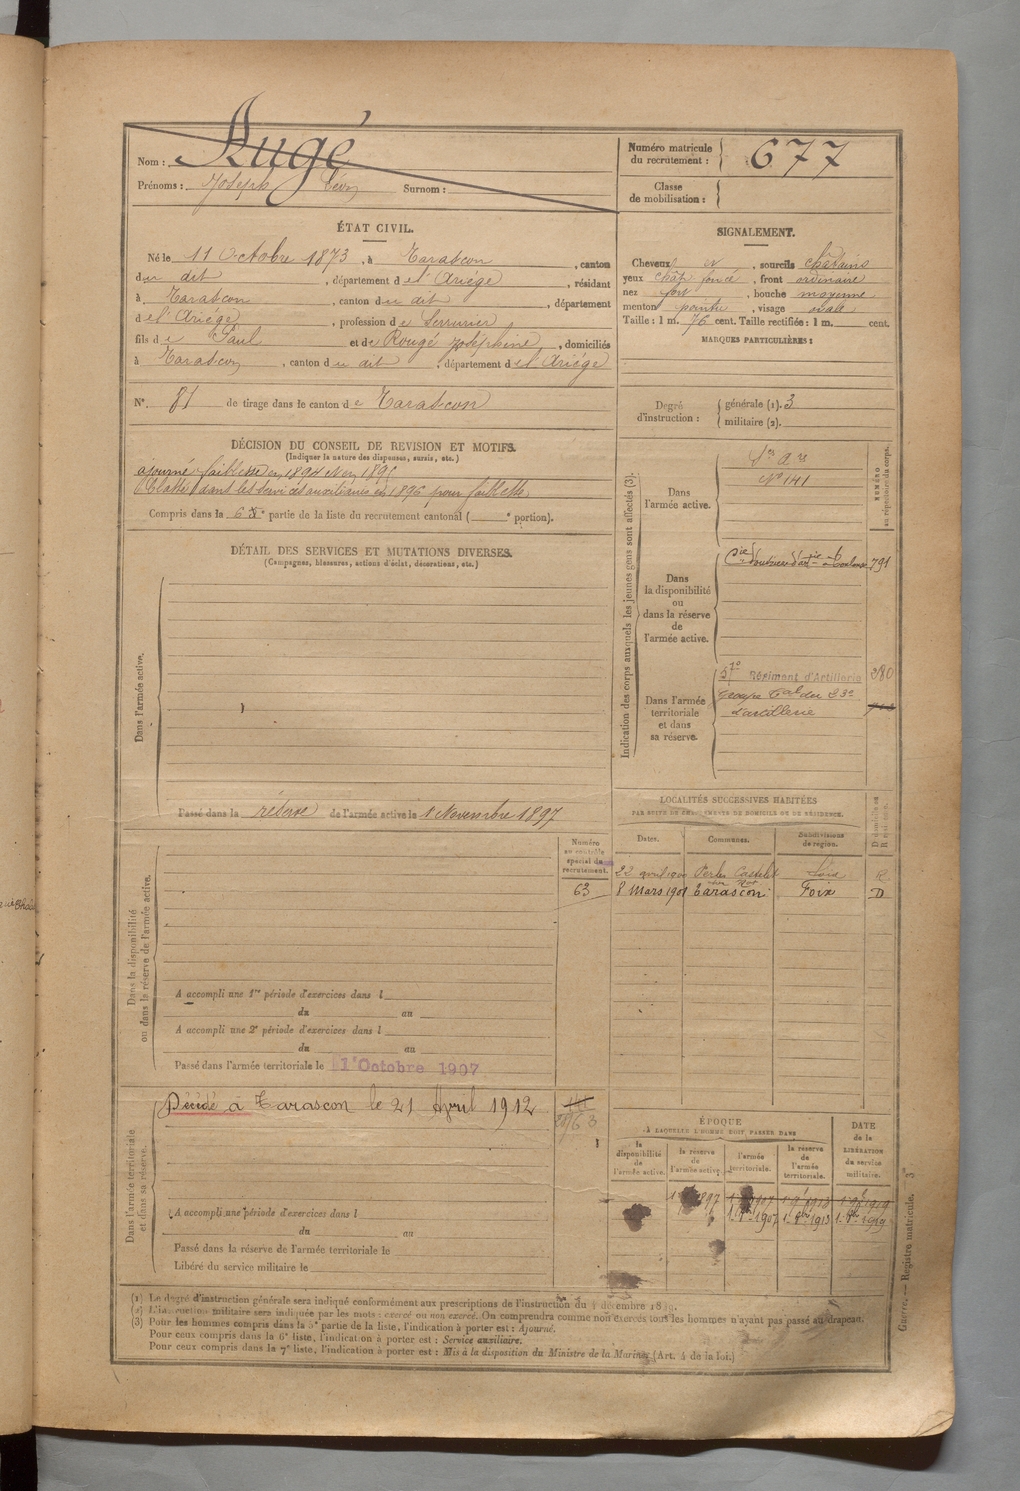 Nom : Augé
Prénoms : Joseph Surnom :
Numéro matricule du recrutement : 677
Classe de mobilisation :
ÉTAT CIVIL.
Né le 11 Octobre 1873, à Tarascon, canton
du dit, département de l'Ariége, résidant
à Tarascon, canton du dit, département
de l'Ariége, profession de Serrurier
fils de Paul et de Rougé Joséphine, domiciliés
à Tarascon, canton du dit, département de l'Ariége
N° 81 de tirage dans le canton de Tarascon
SIGNALEMENT.
Cheveux et, sourcils châtains
yeux chât. foncé, front ordinaire
nez fort, bouche moyenne
menton pointu, visage ovale
Taille : 1 m. 76 cent. Taille rectifiée : 1 m. cent.
MARQUES PARTICULIÈRES :
Degré d'instruction : générale (1). 3
militaire (2).
DÉCISION DU CONSEIL DE REVISION ET MOTIFS.
(Indiquer la nature des dispenses, sursis, etc.)
ajourné faiblesse en 1894 et en 1895
Classé dans les services auxiliaires en 1896 pour faiblesse
Compris dans la 6e partie de la liste du recrutement cantonal ( e portion).
DÉTAIL DES SERVICES ET MUTATIONS DIVERSES.
(Campagnes, blessures, actions d'éclat, décorations, etc.)
Dans l'armée active.
Passé dans la réserve de l'armée active le 1 Novembre 1897
Indication des corps auxquels les jeunes gens sont affectés (3).
NUMÉRO au répertoire du corps.
Dans l'armée active.
N° 141
Dans la disponibilité ou dans la réserve de l'armée active.
791
Dans l'armée territoriale et dans sa réserve.
Régiment d'Artillerie 280
Groupe du 23e
d'artillerie
LOCALITÉS SUCCESSIVES HABITÉES
PAR SUITE DE CHANGEMENTS DE DOMICILE OU DE RÉSIDENCE.
Dates. Communes. Subdivisions de région.
22 avril 1900 Perles Castelet Foix R
8 Mars 1901 Tarascon Foix D
Dans la disponibilité ou dans la réserve de l'armée active.
Numéro au contrôle spécial du recrutement.
63
A accompli une 1re période d'exercices dans l
du au
A accompli une 2e période d'exercices dans l
du au
Passé dans l'armée territoriale le 1er Octobre 1907
Dans l'armée territoriale et dans sa réserve.
Décédé à Tarascon le 21 Avril 1912
A accompli une période d'exercices dans l
du au
Passé dans la réserve de l'armée territoriale le
Libéré du service militaire le
ÉPOQUE
À LAQUELLE L'HOMME DOIT PASSER DANS
la disponibilité de l'armée active.
la réserve de l'armée active.
l'armée territoriale.
la réserve de l'armée territoriale.
DATE de la LIBÉRATION du service militaire.
1897
1907 1913 1919
(1) Le degré d'instruction générale sera indiqué conformément aux prescriptions de l'instruction du 4 décembre 1889.
(2) L'instruction militaire sera indiquée par les mots : exercé ou non exercé. On comprendra comme non exercés tous les hommes n'ayant pas passé au drapeau.
(3) Pour les hommes compris dans la 5e partie de la liste, l'indication à porter est : Ajourné.
Pour ceux compris dans la 6e liste, l'indication à porter est : Service auxiliaire.
Pour ceux compris dans la 7e liste, l'indication à porter est : Mis à la disposition du Ministre de la Marine. (Art. 4 de la loi.)
Guerre. — Registre matricule. 3